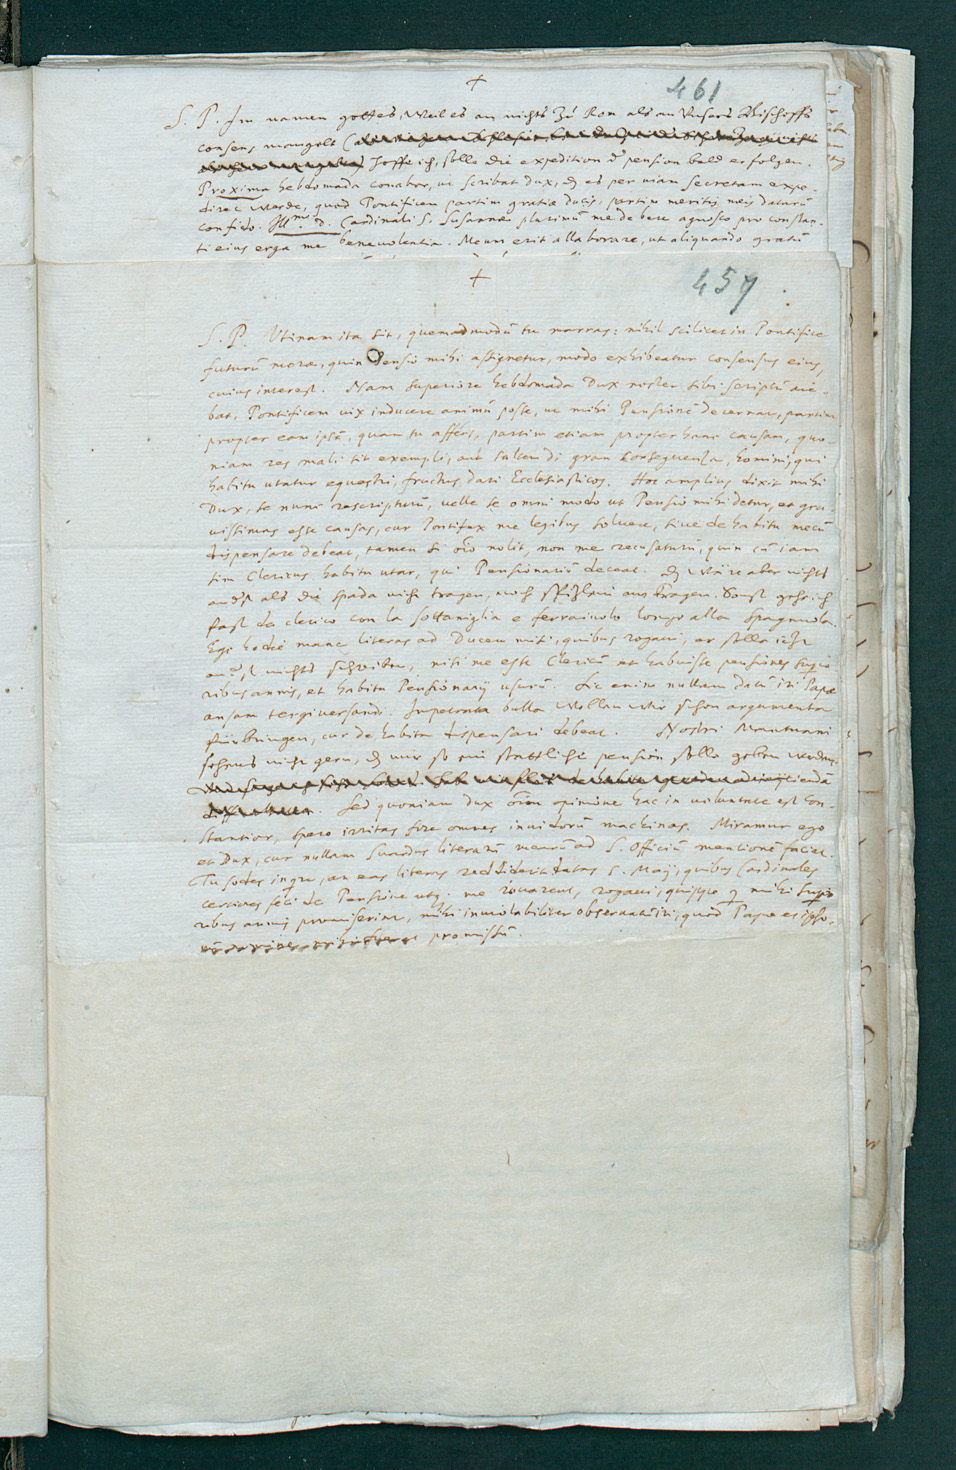 +
461
S. P. Im namen gottes, Weil es an nichts Zů Rom als an Unsers Bischoffs
consens mangelt (
hoffe ich, solle die expedition d' pension bald erfolgen.
Proxima hebdomada conabor, ut scribat Dux, dz es per viam secretam expe-
dirt werde, quod Pontificem partim gratiæ ducis, partim meritis meis daturũ
confido. Ill.mo D. Cardinali S. Susannæ plurimũ me debere agnosco pro constan-
ti eius erga me benevolentia. Meum erit allaborare, ut aliquando gratũ
+
457
S. P. Utinam ita sit, quemadmodũ tu narras: nihil scilicet in Pontifice
futurũ moræ, quin Pensio mihi assignetur, modo exhibeatur consensus eius,
cuius interest. Nam superiore hebdomada Dux noster sibi scriptũ aie-
bat, Pontificem vix inducere animũ posse, ut mihi Pensionẽ decernat, partim
propter eam ipsã, quam tu affers, partim etiam propter hanc causam, quo-
niam res mali sit exempli, aut saltem di gran conseguenza, homini, qui
habitu utatur equestri, fructus dari Ecclesiasticos. Hoc amplius dixit mihi
Dux, se nunc rescripturũ, velle se omni modo ut Pensio mihi detur, et gra-
vissimas esse causas, cur Pontifex me legibus solvere, sive de habitu mecũ
dispensare debeat, tamen si oĩo nolit, non me recusaturũ, quin cũ iam
sim Clericus habitu utar, qui Pensionariũ deceat. dz wäre aber nichts
anders als die spada nicht tragen, noch anẞtragen. Sonst gehe ich
fast da clerico con la sottaniglia e ferraiuolo longo alla Spagnuola.
Egi hodie mane literas ad Ducem misi, quibus rogavi, er solle ietzt
anders nichts schreiben, nisi me esse Clericũ et habuisse pensiones supe-
rioribus annis, et habitu Pensionarij usurũ. Sic enim nullam datũ iri Papæ
ansam tergiversandi. Impetrata bulla wollen wir schon argumenta
fürbringen, cur de habitu dispensari debeat. Nostri Mantuani
sehens nicht gern, dz mir so ein stattliche pension solle geben werden.
Sed quoniam Dux opinione hac in voluntate est con-
stantior, spero irritas fore omnes invidorũ machinas. Miramur ego
et Dux, cur nullam Suardus literarũ mearũ ad S. Officiũ mentionẽ faciat.
Tu sodes inquire, an eas literas reddiderit datas 5. Maij, quibus Cardinales
certiores feci de Pensione utq. me iuvarent, rogavi, quippe q mihi supe-
rioribus annis promiserint, mihi inviolabiliter observatũ iri, quod Papa
promissũ.